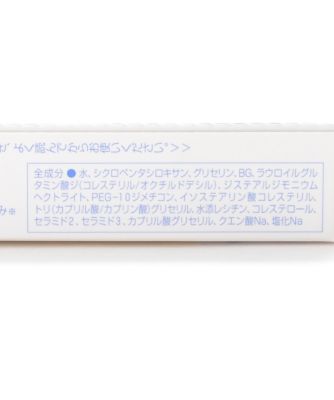 よく読んでからお使いください>>
全成分●水、シクロペンタシロキサン、グリセリン、BG、ラウロイルグル
タミン酸ジ(コレステリル/オクチルドデシル)、ジステアルジモニウム
ヘクトライト、PEG-10ジメチコン、イソステアリン酸コレステリル、
トリ(カプリル酸/カプリン酸)グリセリル、水添レシチン、コレステロール、
セラミド2、セラミド3、カプリル酸グリセリル、クエン酸Na、塩化Na
み※